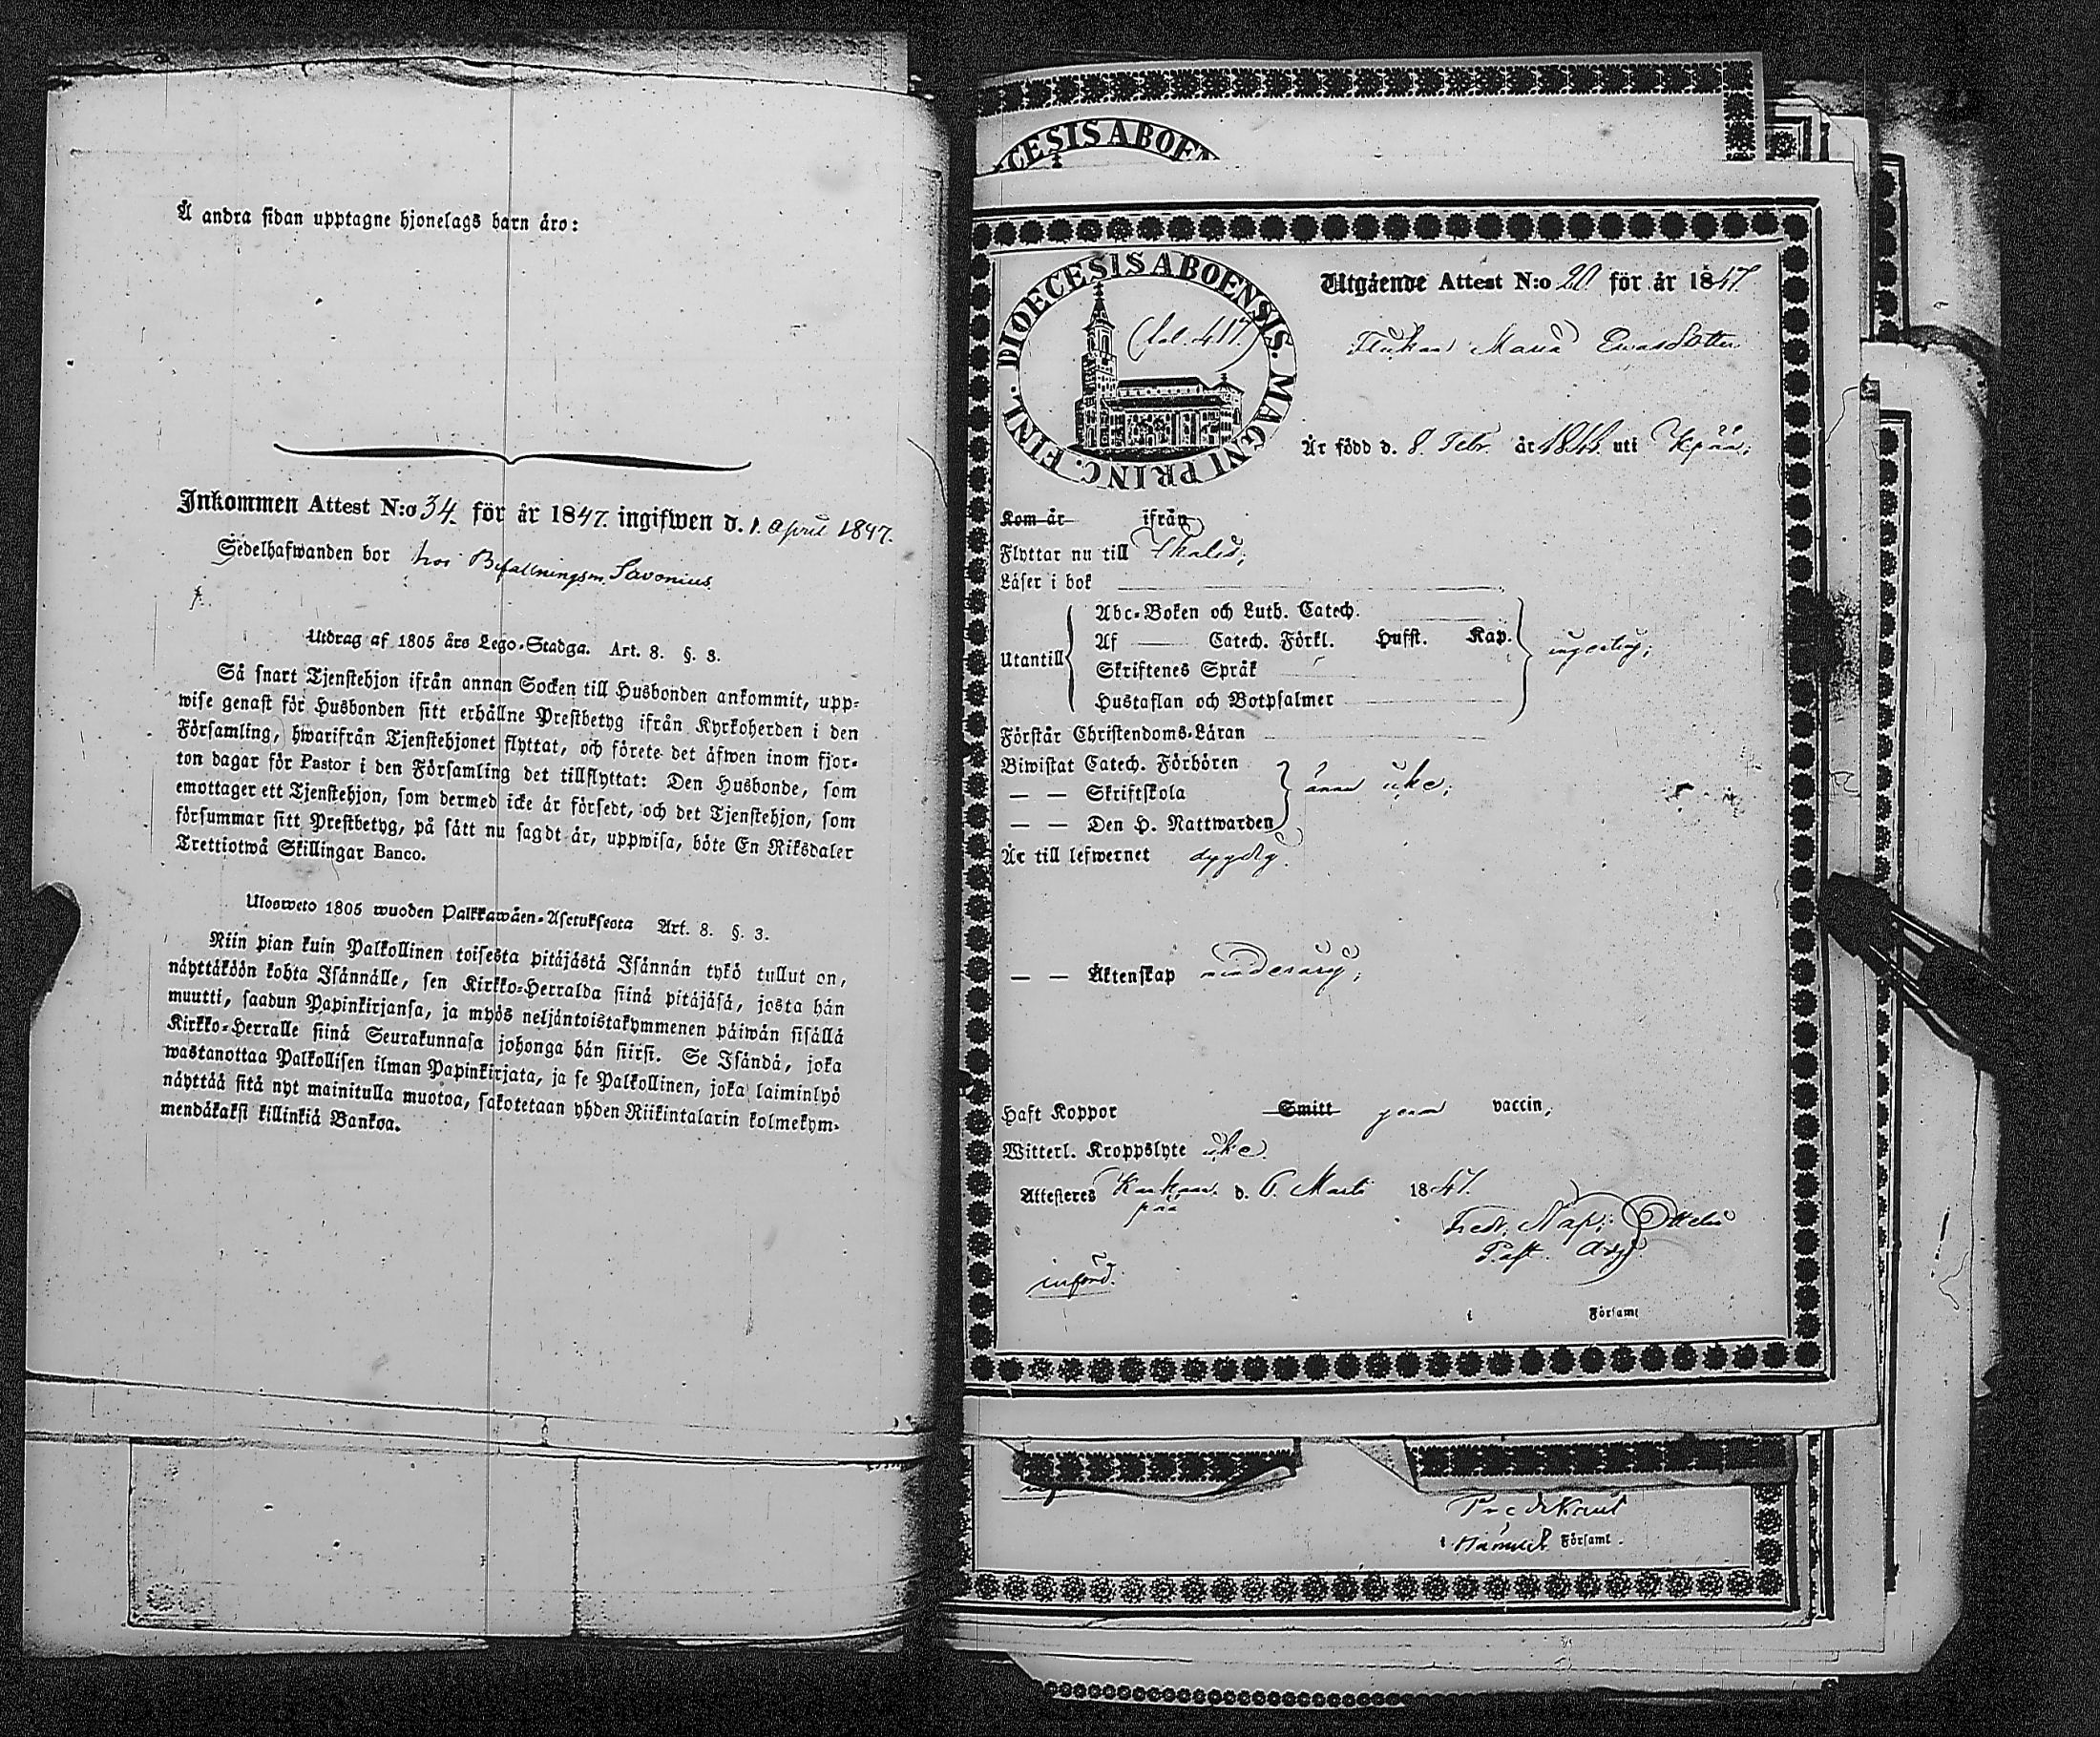 Å andra sidan upptagne hjonelags barn äro:
Inkommen Attest N:o 34. för år 1847. ingifwen d. 1. April 1847.
Sedelhafwanden bor hos Befallningsm. Savonius
Utdrag af 1805 års Lego-Stadga. Art. 8. §. 3.
Så snart Tjenstehjon ifrån annan Socken till Husbonden ankommit, upp-
wise genast för Husbonden sitt erhållne Prestbetyg ifrån Kyrkoherden i den
Församling, hwarifrån Tjenstehjonet flyttat, och förete det äfwen inom fjor-
ton dagar för Pastor i den Församling det tillflyttat: Den Husbonde, som
emottager ett Tjenstehjon, som dermed icke är försedt, och det Tjenstehjon, som
försummar sitt Prestbetyg, på sätt nu sagdt är, uppwisa, böte En Riksdaler
Trettiotwå Skillingar Banco.
Ulosweto 1805 wuoden Palkkawäen-Asetuksesta Art. 8. §. 3.
Niin pian kuin Palkollinen toisesta pitäjästä Isännän tykö tullut on,
näyttäköön kohta Isännälle, sen Kirkko-Herralda siinä pitäjäsä, josta hän
muutti, saadun Papinkirjansa, ja myös neljäntoistakymmenen päiwän sisällä
Kirkko-Herralle siinä Seurakunnasa johonga hän siirsi. Se Isändä, joka
wastanottaa Palkollisen ilman Papinkirjata, ja se Palkollinen, joka laiminlyö
näyttää sitä nyt mainitulla muotoa, sakotetaan yhden Riikintalarin kolmekym-
mendäkaksi killinkiä Bankoa.
CESIS ABOEN
DIOECESIS ABOENSIS. MAGNI PRINC. FINL.
(fol. 417.)
Utgående Attest N:o 20 för år 1847
Flickan Maria Evasdotter
Är född d. 8. Febr. år uti Kpää;
Kom år ifrån
Flyttar nu till
Läser i bok
Utantill
Abc-Boken och Luth. Catech.
Af Catech. Förkl. Hufst. Kap.
Skriftenes Språk
Hustaflan och Botpsalmer
ingenting;
Förstår Christendoms-Läran
Biwistat Catech. Förhören
— — Skriftskola
— — Den H. Nattwarden
ännu icke;
Är till lefwernet dygdig.
— — Äktenskap minderårig;
Haft Koppor Smitt genom vaccin,
Witterl. Kroppslyte icke.
Attesteres d. 6. Martii 1847.
pää
Past. Adj.
införd.
i Församl
Predikant
i Församl.